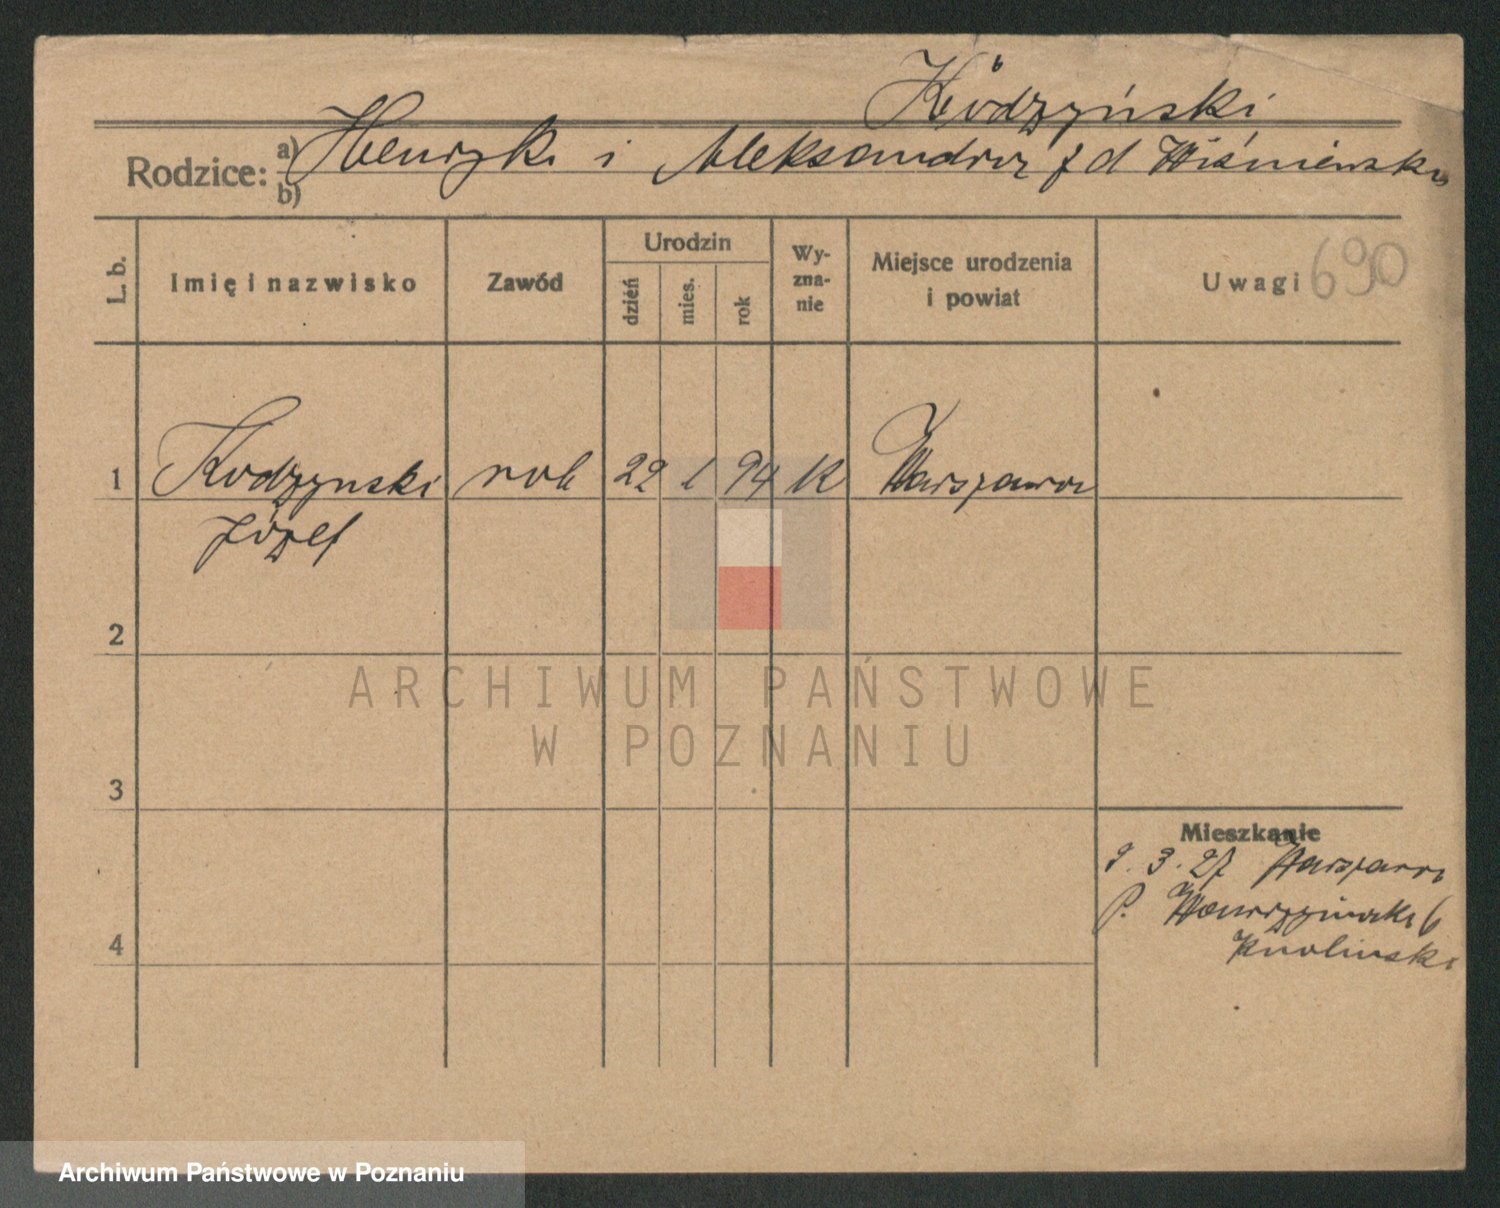 Kodzyński
Rodzice: a) Henryk i Aleksandra z d Wiśniewska
b)
L. b.
Imię i nazwisko
Zawód
Urodzin
dzień
mies.
rok
Wy-
zna-
nie
Miejsce urodzenia
i powiat
Uwagi 690
1 Kodzynski rob 22 1 94 K Warszawa
Józef
2
ARCHIWUM PAŃSTWOWE
W POZNANIU
3
Mieszkanie
9. 3. 27 Warszawa
P. 6
4
Archiwum Państwowe w Poznaniu